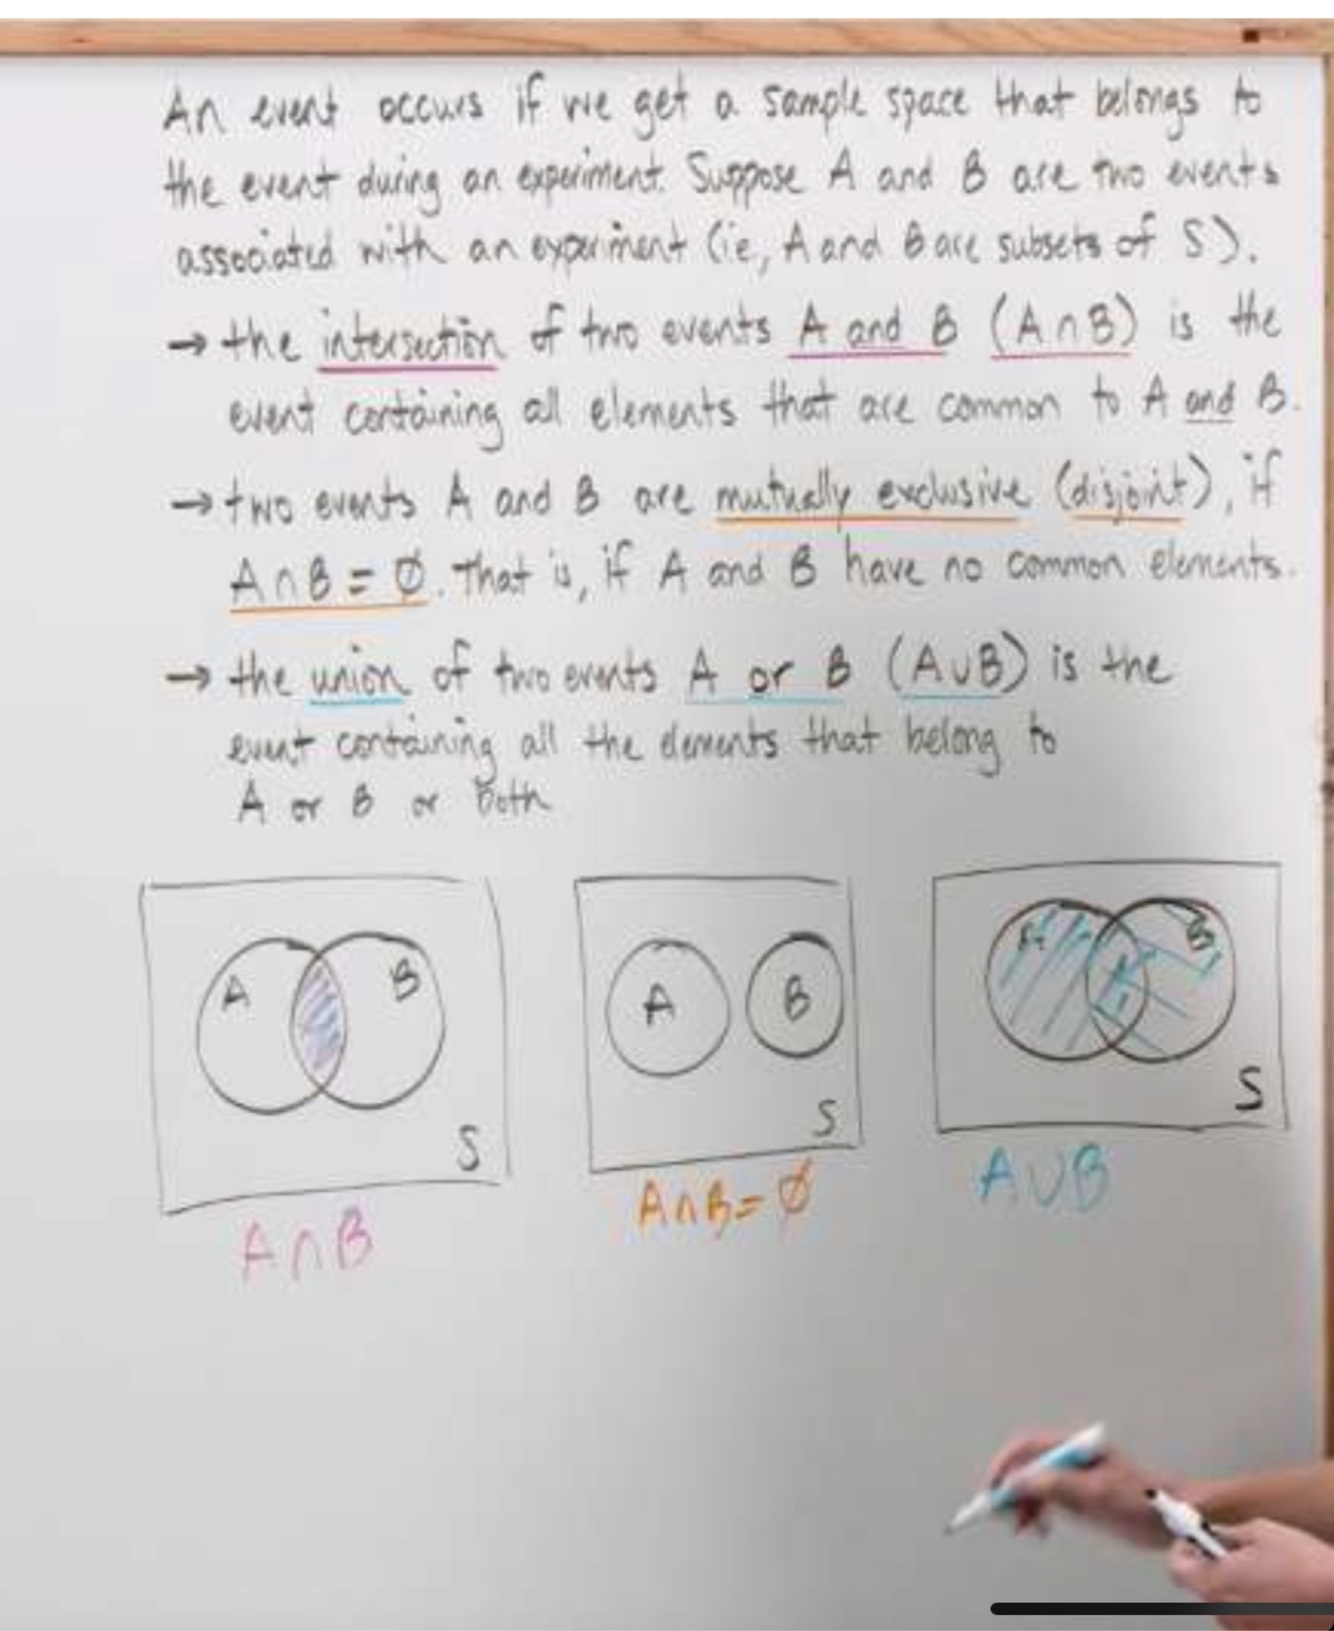 An event occurs if we get a sample space that belongs to
the event during an experiment. Suppose A and B are two events
associated with an experiment (ie, A and B are subsets of S).
→ the intersection of two events A and B (A∩B) is the
event containing all elements that are common to A and B.
→ two events A and B are mutually exclusive (disjoint), if
A∩B = Ø. That is, if A and B have no common elements.
→ the union of two events A or B (A∪B) is the
event containing all the elements that belong to
A or B or both
A B S
A B S
A B S
A∩B
A∩B = Ø
A∪B